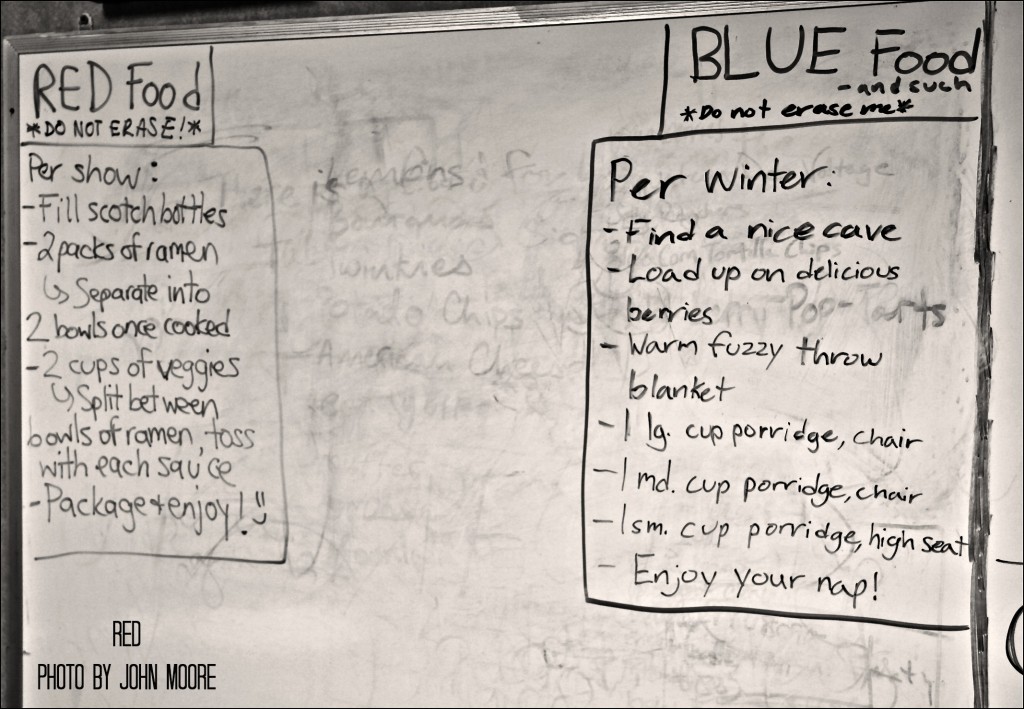 RED Food
*DO NOT ERASE!*
Per show:
-Fill scotch bottles
-2 packs of ramen
↳ Separate into
2 bowls once cooked
-2 cups of veggies
↳ Split between
bowls of ramen, toss
with each sauce
-Package + enjoy! :)
BLUE Food
-and such
*Do not erase me*
Per Winter:
- Find a nice cave
- Load up on delicious
berries
- Warm fuzzy throw
blanket
- 1 lg. cup porridge, chair
- 1 md. cup porridge, chair
- 1 sm. cup porridge, high seat
- Enjoy your nap!
Lemons:
Twinkies
Corn Tortilla Chips
Potato Chips
Pop-Tarts
American Cheese
RED
PHOTO BY JOHN MOORE